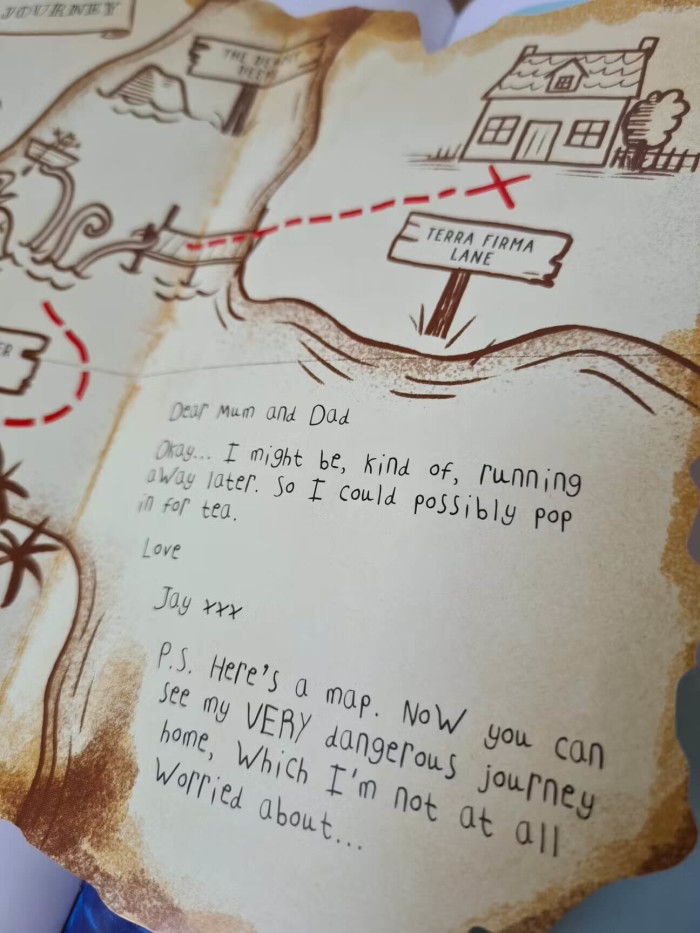 JOURNEY
THE
DEEP
TERRA FIRMA
LANE
ER
Dear Mum and Dad
Okay... I might be, kind of, running
away later. So I could possibly pop
in for tea.
Love
Jay xxx
P.S. Here's a map. Now you can
see my VERY dangerous journey
home, which I'm not at all
worried about...